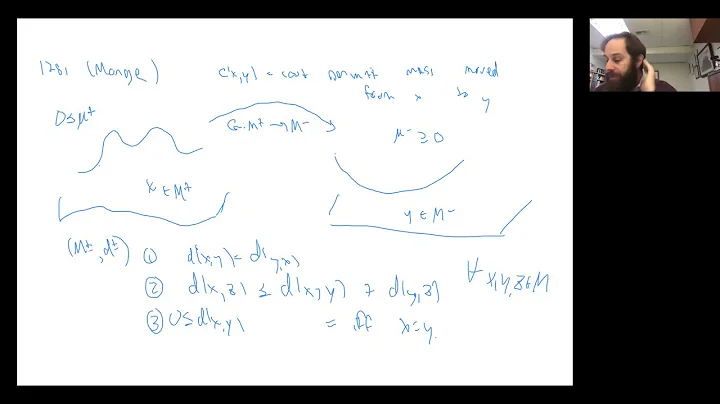 1781 (Monge) c(x,y) = cost per unit mass moved
from x to y
0 ≤ μ⁺
G: M⁺ → M⁻
μ⁻ ≥ 0
x ∈ M⁺
y ∈ M⁻
(M±, d±) ① d(x,y) = d(y,x)
② d(x,z) ≤ d(x,y) + d(y,z) ∀ x,y,z ∈ M
③ 0 ≤ d(x,y) = iff x=y.